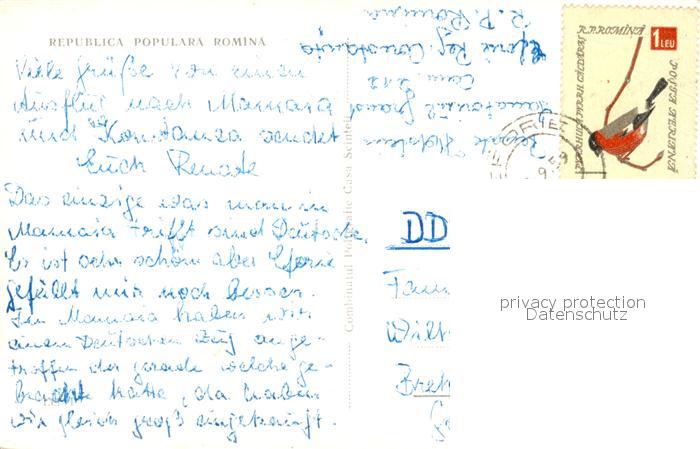 REPUBLICA POPULARĂ ROMÎNĂ
Viele Grüße von einem
Ausflug nach Mamaia
und Konstanza sendet
Euch Renate
Das einzige was man in
Mamaia trifft sind Deutsche.
Es ist sehr schön aber Eforie
gefällt mir noch besser.
In Mamaia haben wir
einen Deutschen Zug ange-
troffen der gerade welche ge-
bracht hatte, da haben
wir gleich groß eingekauft.
Combinatul Poligrafic Casa Scînteii
Renate
Eforie Reg. Constanţa
R. P. Romina
R.P.ROMÎNĂ
1 LEU
POSTA AERIANA
PYRRHULA PYRRH.
EFORIE
DD
Fam
Wilh
privacy protection
Datenschutz